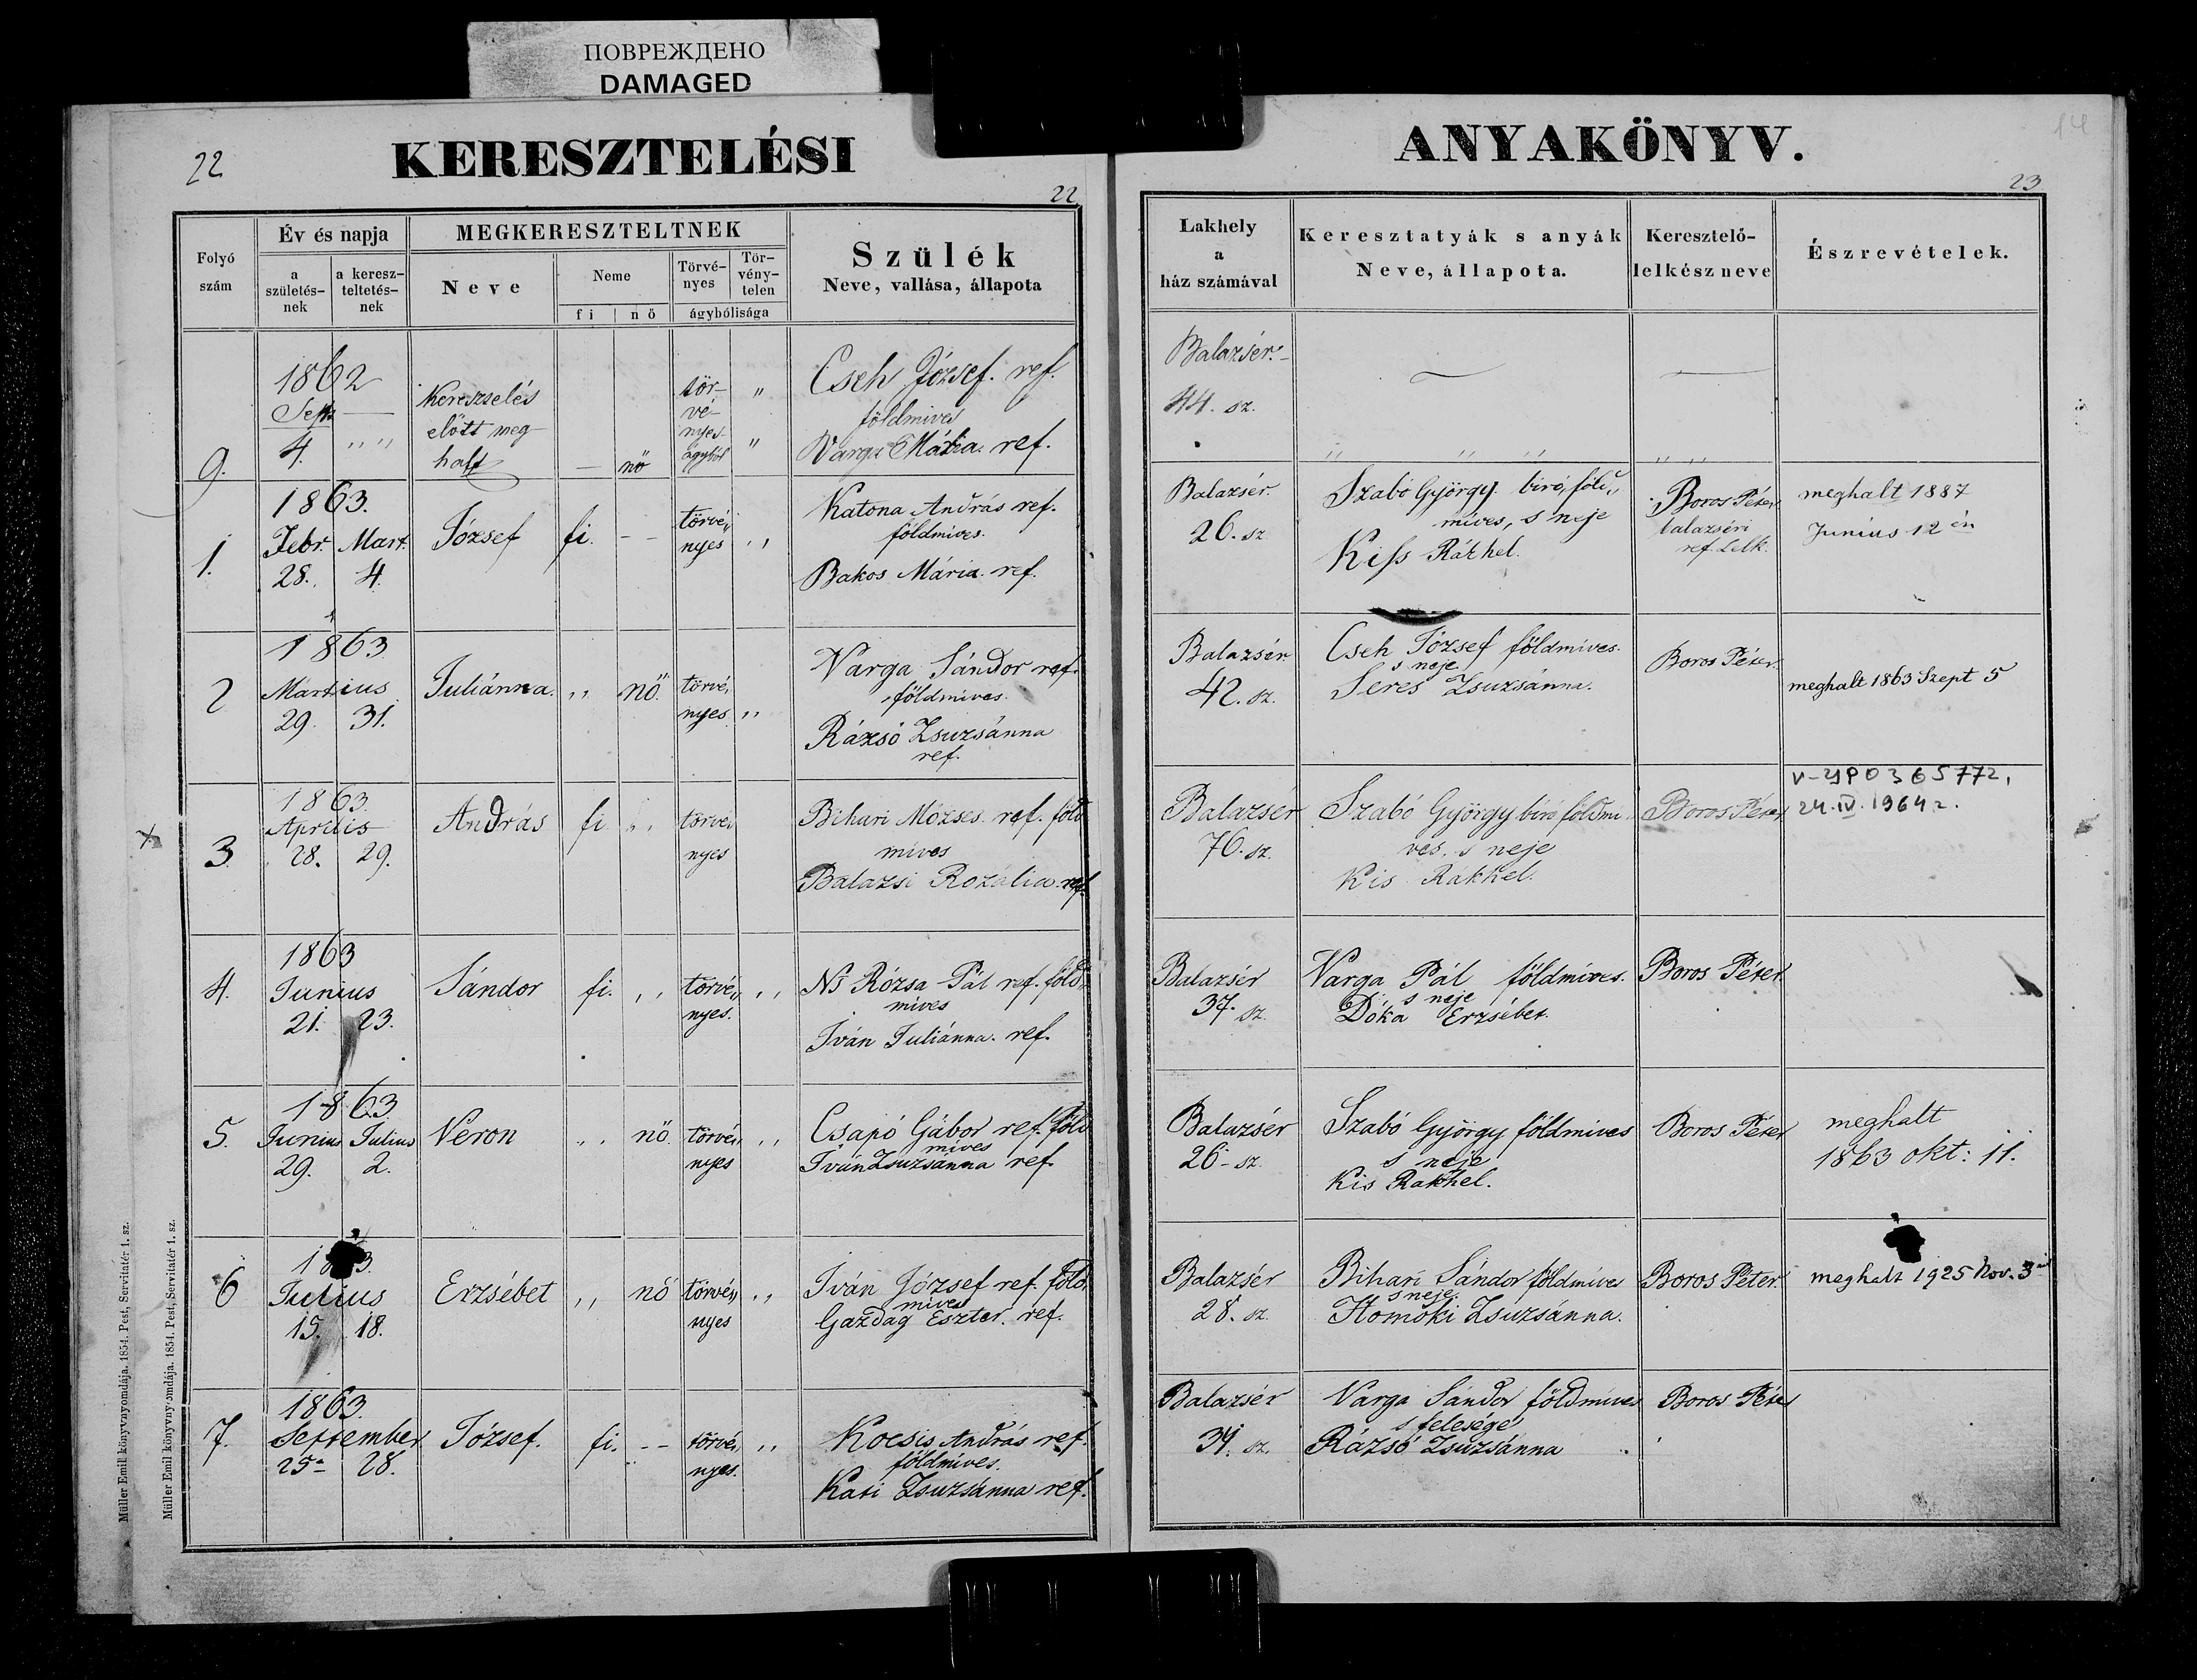 ПОВРЕЖДЕНО
DAMAGED
22
KERESZTELÉSI
22
Folyó szám
Év és napja
a születés-nek
a keresz-teltetés-nek
MEGKERESZTELTNEK
Neve
Neme
fi
nő
Törvé-nyes
Tör-vény-telen
ágybólisága
Szülék
Neve, vallása, állapota
9.
1862
Sept
4. " "
Kereszelés
előtt meg
halt
— nő
tör-
vé-
nyes
ágyból
"
"
Cseh József. ref.
földmives
Varga Mária. ref.
1.
1863.
Febr. Mart.
28. 4.
József
fi. - -
törvé„
nyes „
Katona András ref.
földmives.
Bakos Mária. ref.
2
1863
Martius
29. 31.
Juliánna.
„ nő.
törvé„
nyes. „
Varga Sándor ref.
földmives.
Rázsó Zsuzsánna
ref.
3
1863.
Aprilis
28. 29.
András
fi „
törvé„
nyes
Bihari Mózses. ref. föld
mives
Balazsi Rozália. ref.
4.
1863
Junius
21. 23.
Sándor
fi. „
törvé„ „
nyes.
Ns Rózsa Pál ref. föld„
mives
Iván Juliánna. ref.
5.
1863.
Junius Julius
29. 2.
Veron
„ nő.
törvé„ „
nyes
Csapó Gábor ref. föld
mives
Iván Zsuzsánna ref.
6
1863.
Julius
15. 18.
Erzsébet
„ nő
törvé„ „
nyes
Iván József ref. föld
mives
Gazdag Eszter. ref.
7.
1863.
September
25- 28.
József.
fi. - -
törvé„ „
nyes.
Kocsis András ref.
földmives.
Kati Zsuzsánna ref.
Müller Emil könyvnyomdája. 1854. Pest, Servitatér 1. sz.
Müller Emil könyvnyomdája. 1854. Pest, Servitatér 1. sz.
ANYAKÖNYV.
14
23
Lakhely
a
ház számával
Keresztatyák s anyák
Neve, állapota.
Keresztelő-
lelkész neve
Észrevételek.
Balazsér.
44. sz.
Balazsér.
26. sz
Szabó György. biró, föld„
mives, s neje
Kiss Rákhel.
Boros Péter
balazséri
ref. Lelk.
meghalt 1887
Junius 12 én
Balazsér.
42. sz.
Cseh József földmives.
s neje
Seres Zsuzsánna.
Boros Péter.
meghalt 1863 Szept 5
Balazsér
76. sz.
Szabó György biró földmi„
ves. s neje
Kis Rákhel.
Boros Péter
V-УР 0365772,
24.IV.1964г.
Balazsér
37. sz.
Varga Pál földmives.
s neje
Dóka Erzsébet.
Boros Péter.
Balazsér
26- sz.
Szabó György földmives
s neje
Kis Rakhel.
Boros Péter
meghalt
1863 okt: 11.
Balazsér
28. sz.
Bihari Sándor földmives
s neje.
Homoki Zsuzsánna.
Boros Péter.
meghalt 1925 Nov. 3
Balazsér
34. sz.
Varga Sándor földmives
s felesége
Rázsó Zsuzsánna
Boros Péter